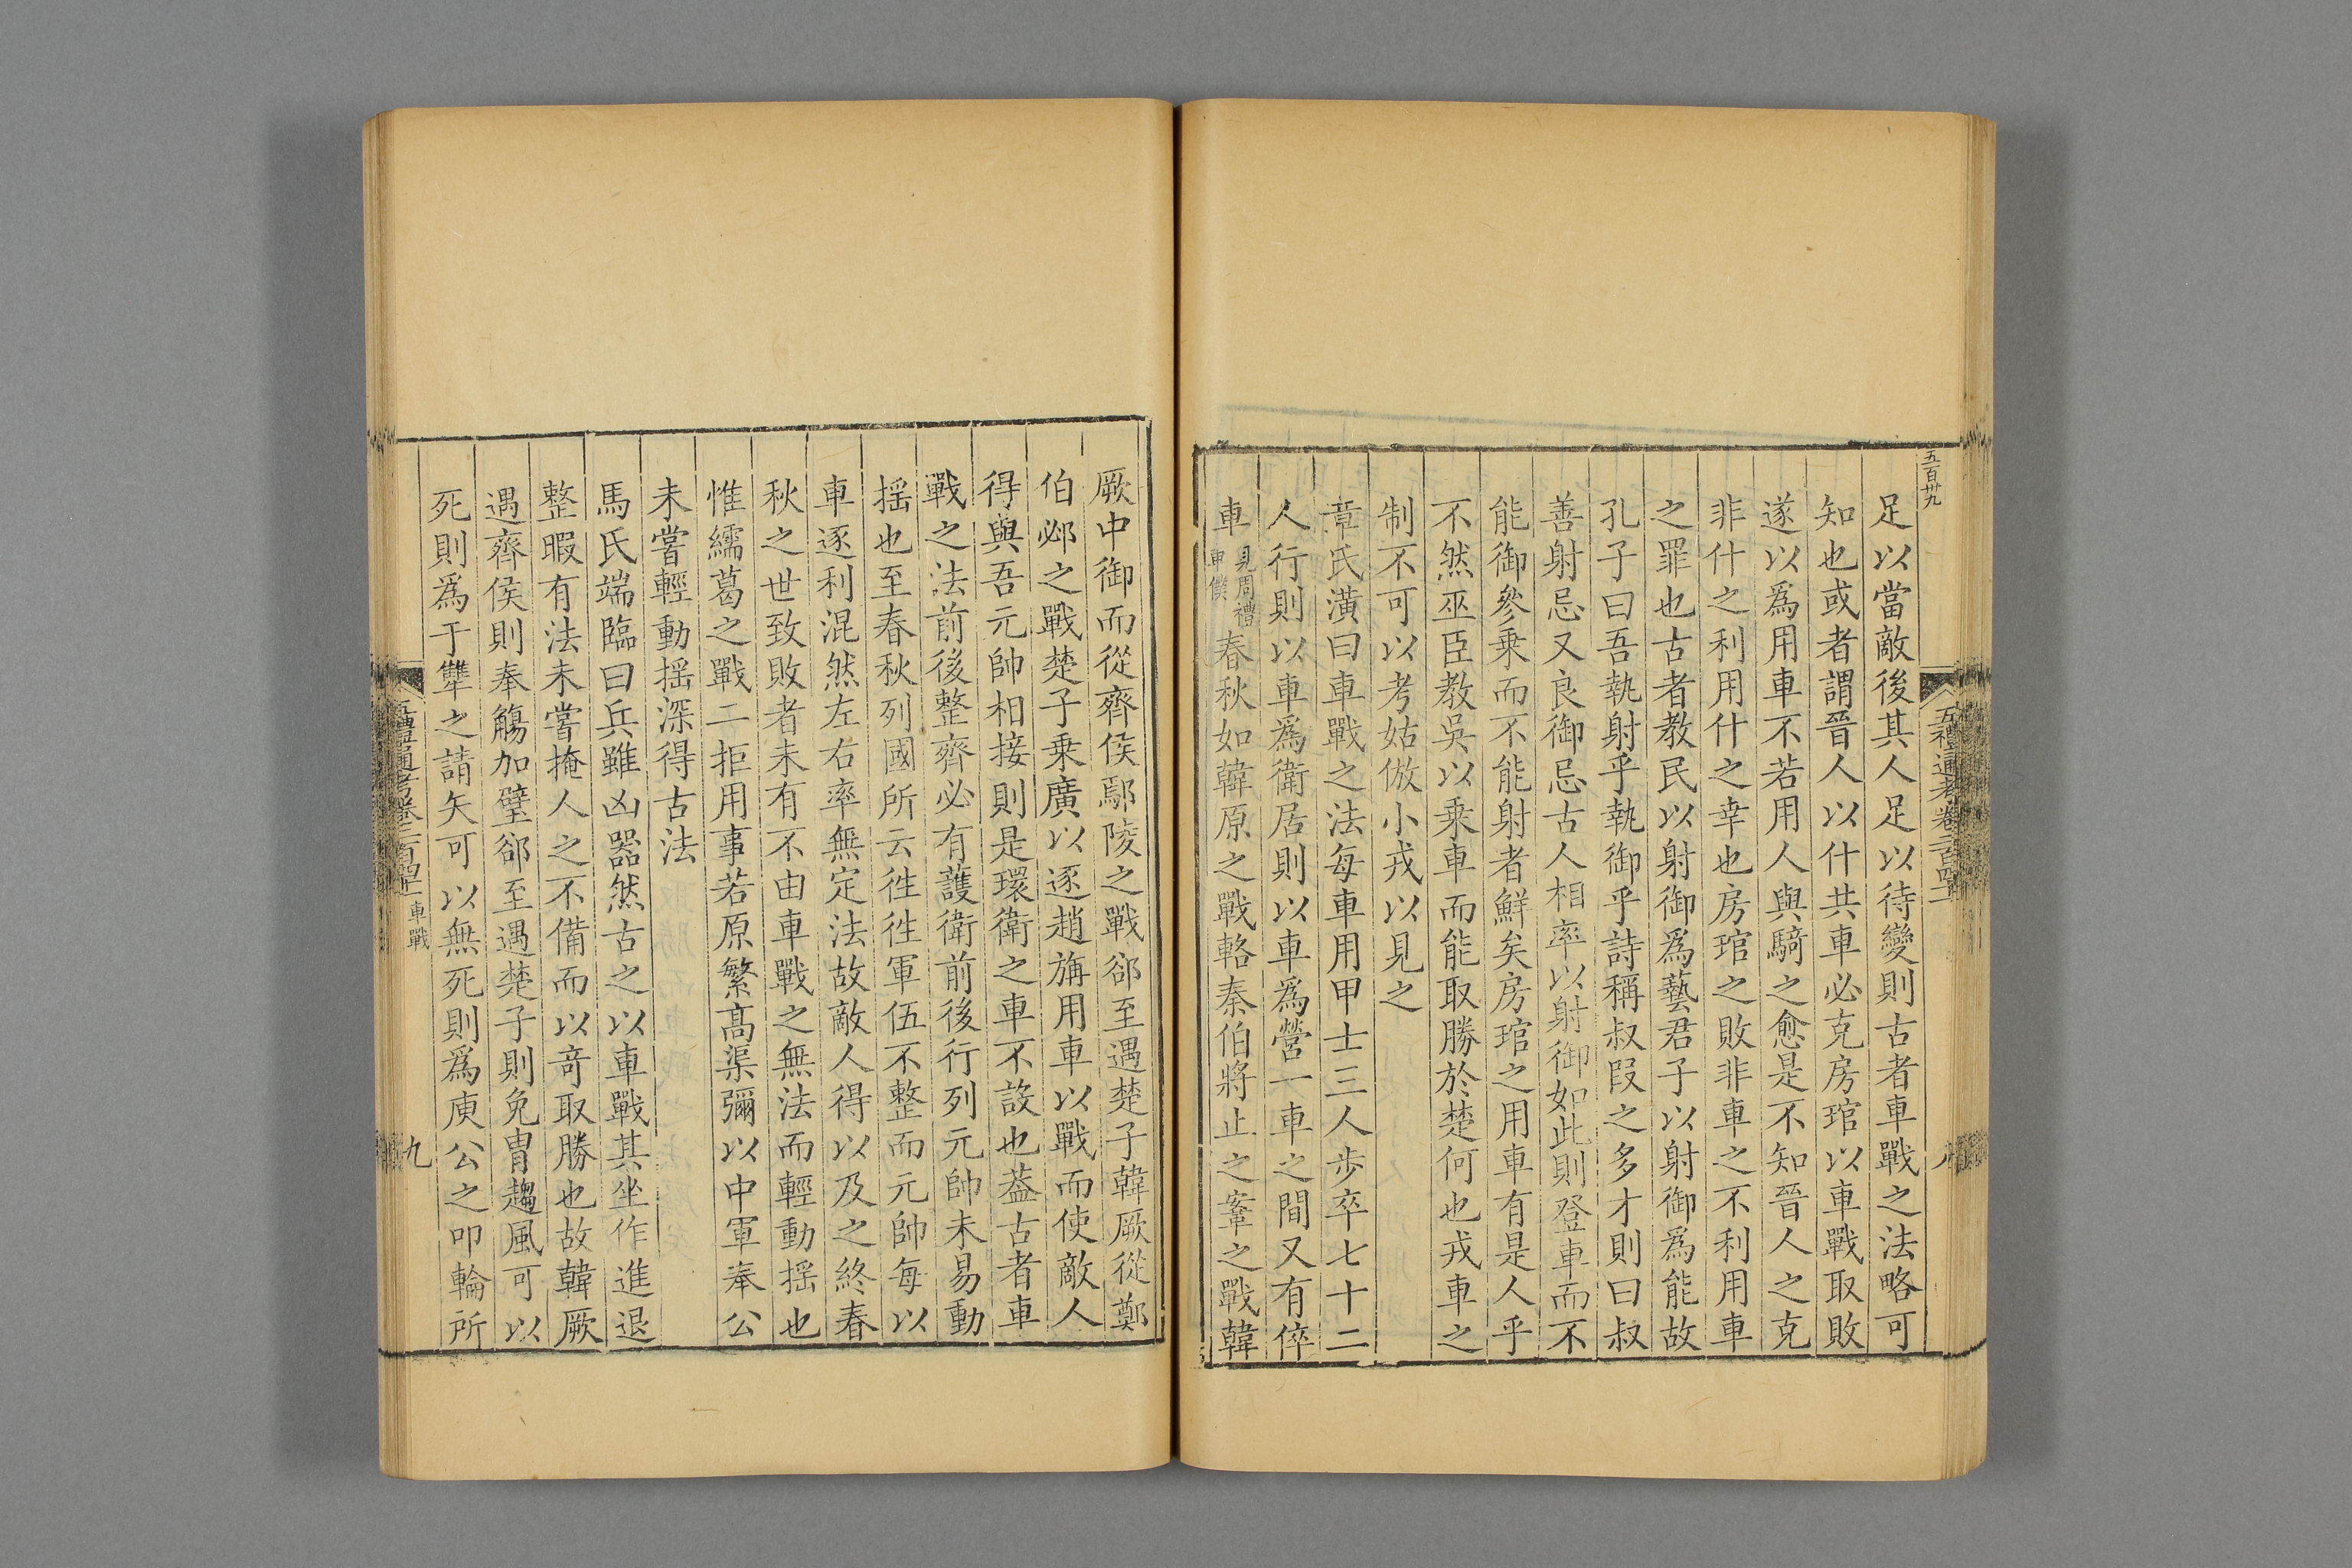 五百卅九
五禮通考卷二百四十二
足以當敵後其人足以待變則古者車戰之法略可
知也或者謂晉人以什共車必克房琯以車戰取敗
遂以爲用車不若用人與騎之愈是不知晉人之克
非什之利用什之幸也房琯之敗非車之不利用車
之罪也古者教民以射御爲藝君子以射御爲能故
孔子曰吾執射乎執御乎詩稱叔叚之多才則曰叔
善射忌又良御忌古人相率以射御如此則登車而不
能御參乗而不能射者鮮矣房琯之用車有是人乎
不然巫臣教吳以乗車而能取勝於楚何也戎車之
制不可以考姑倣小戎以見之
章氏潢曰車戰之法每車用甲士三人步卒七十二
人行則以車爲衛居則以車爲營一車之間又有倅
車見周禮車僕春秋如韓原之戰輅秦伯將止之鞌之戰韓
厥中御而從齊侯鄢陵之戰郤至遇楚子韓厥從鄭
伯邲之戰楚子乗廣以逐趙旃用車以戰而使敵人
得與吾元帥相接則是環衛之車不設也葢古者車
戰之法前後整齊必有護衛前後行列元帥未易動
揺也至春秋列國所云徃徃軍伍不整而元帥每以
車逐利混然左右率無定法故敵人得以及之終春
秋之世致敗者未有不由車戰之無法而輕動揺也
惟繻葛之戰二拒用事若原繁髙渠彌以中軍奉公
未嘗輕動揺深得古法
馬氏端臨曰兵雖凶器然古之以車戰其坐作進退
整暇有法未嘗掩人之不備而以竒取勝也故韓厥
遇齊侯則奉觴加璧郤至遇楚子則免冑趨風可以
死則爲于犫之請矢可以無死則爲庾公之叩輪所
五禮通考卷二百四十二
車戰
九